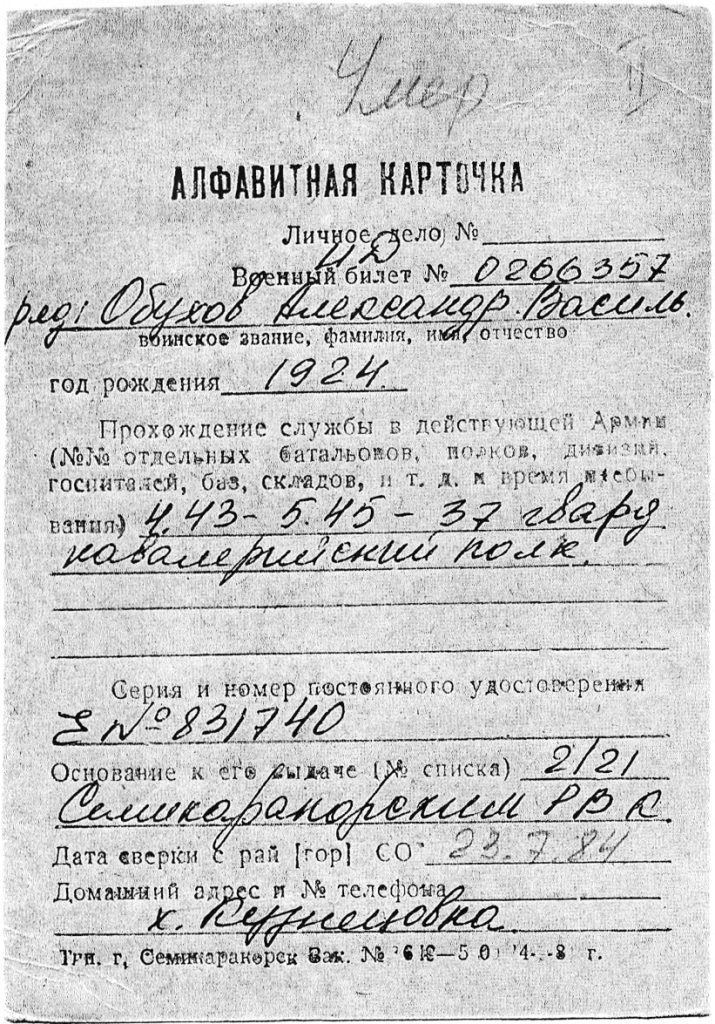 Умер
II
АЛФАВИТНАЯ КАРТОЧКА
Личное дело №
ИД
Военный билет № 0266357
ряд: Обухов Александр Василь.
воинское звание, фамилия, имя, отчество
год рождения 1924.
Прохождение службы в действующей Армии
(№№ отдельных батальонов, полков, дивизий,
госпиталей, баз, складов, и т. д. и время пребы-
вания) 4.43 - 5.45 - 37 гвард
кавалерийский полк.
Серия и номер постоянного удостоверения
Е № 831740
Основание к его выдаче (№ списка) 2/21
Семикаракорским РВК.
Дата сверки с рай [гор] СО 23.7.84
Домашний адрес и № телефона
х. Кузнецовка.
Тип. г. Семикаракорск Зак. №